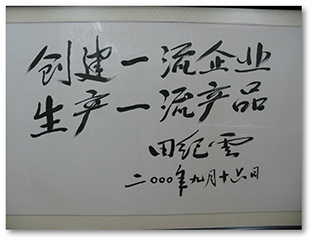 创建一流企业
生产一流产品
田纪雲
二〇〇〇年九月十六日